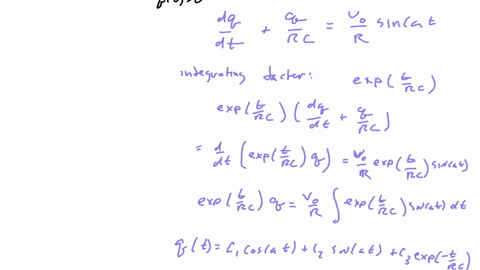 dq/dt + q/RC = V₀/R sin(at
integrating factor: exp(t/RC)
exp(t/RC) (dq/dt + q/RC)
= d/dt (exp(t/RC) q) = V₀/R exp(t/RC) sin(at)
exp(t/RC) q = V₀/R ∫ exp(t/RC) sin(at) dt
q(t) = C₁ cos(at) + C₂ sin(at) + C₃ exp(-t/RC)